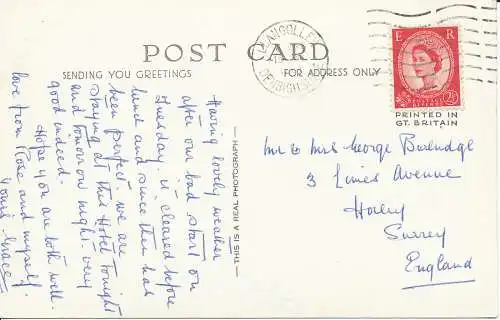 POST CARD
SENDING YOU GREETINGS
FOR ADDRESS ONLY
LLANGOLLEN
DENBIGHSHIRE
E R
POSTAGE REVENUE
2½D
PRINTED IN
GT. BRITAIN
THIS IS A REAL PHOTOGRAPH
Having lovely weather
after our bad start on
Tuesday. it cleared before
lunch and since then has
been perfect. we are
staying at this Hotel tonight
and tomorrow night. very
good indeed.
Hope you are both well.
love from Rose and myself.
Yours Grace
Mr & Mrs George
3 Limes Avenue
Horley
Surrey
England